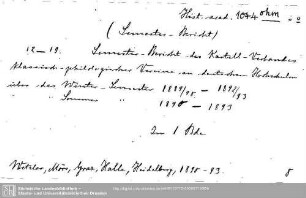 Hist. acad. 1044 ohm
(Semester-Bericht)
12-19. Semester-Bericht des Kartell-Verbandes
klassisch-philologischer Vereine an deutschen Hochschulen
über das Winter-Semester 1897/98 - 1892/93
" Sommer " 1890 - 1893
In 1 Bde.
Wetzlar, Mörs, Graz, Halle, Heidelberg, 1890-93. 8
Sächsische Landesbibliothek -
Staats- und Universitätsbibliothek Dresden